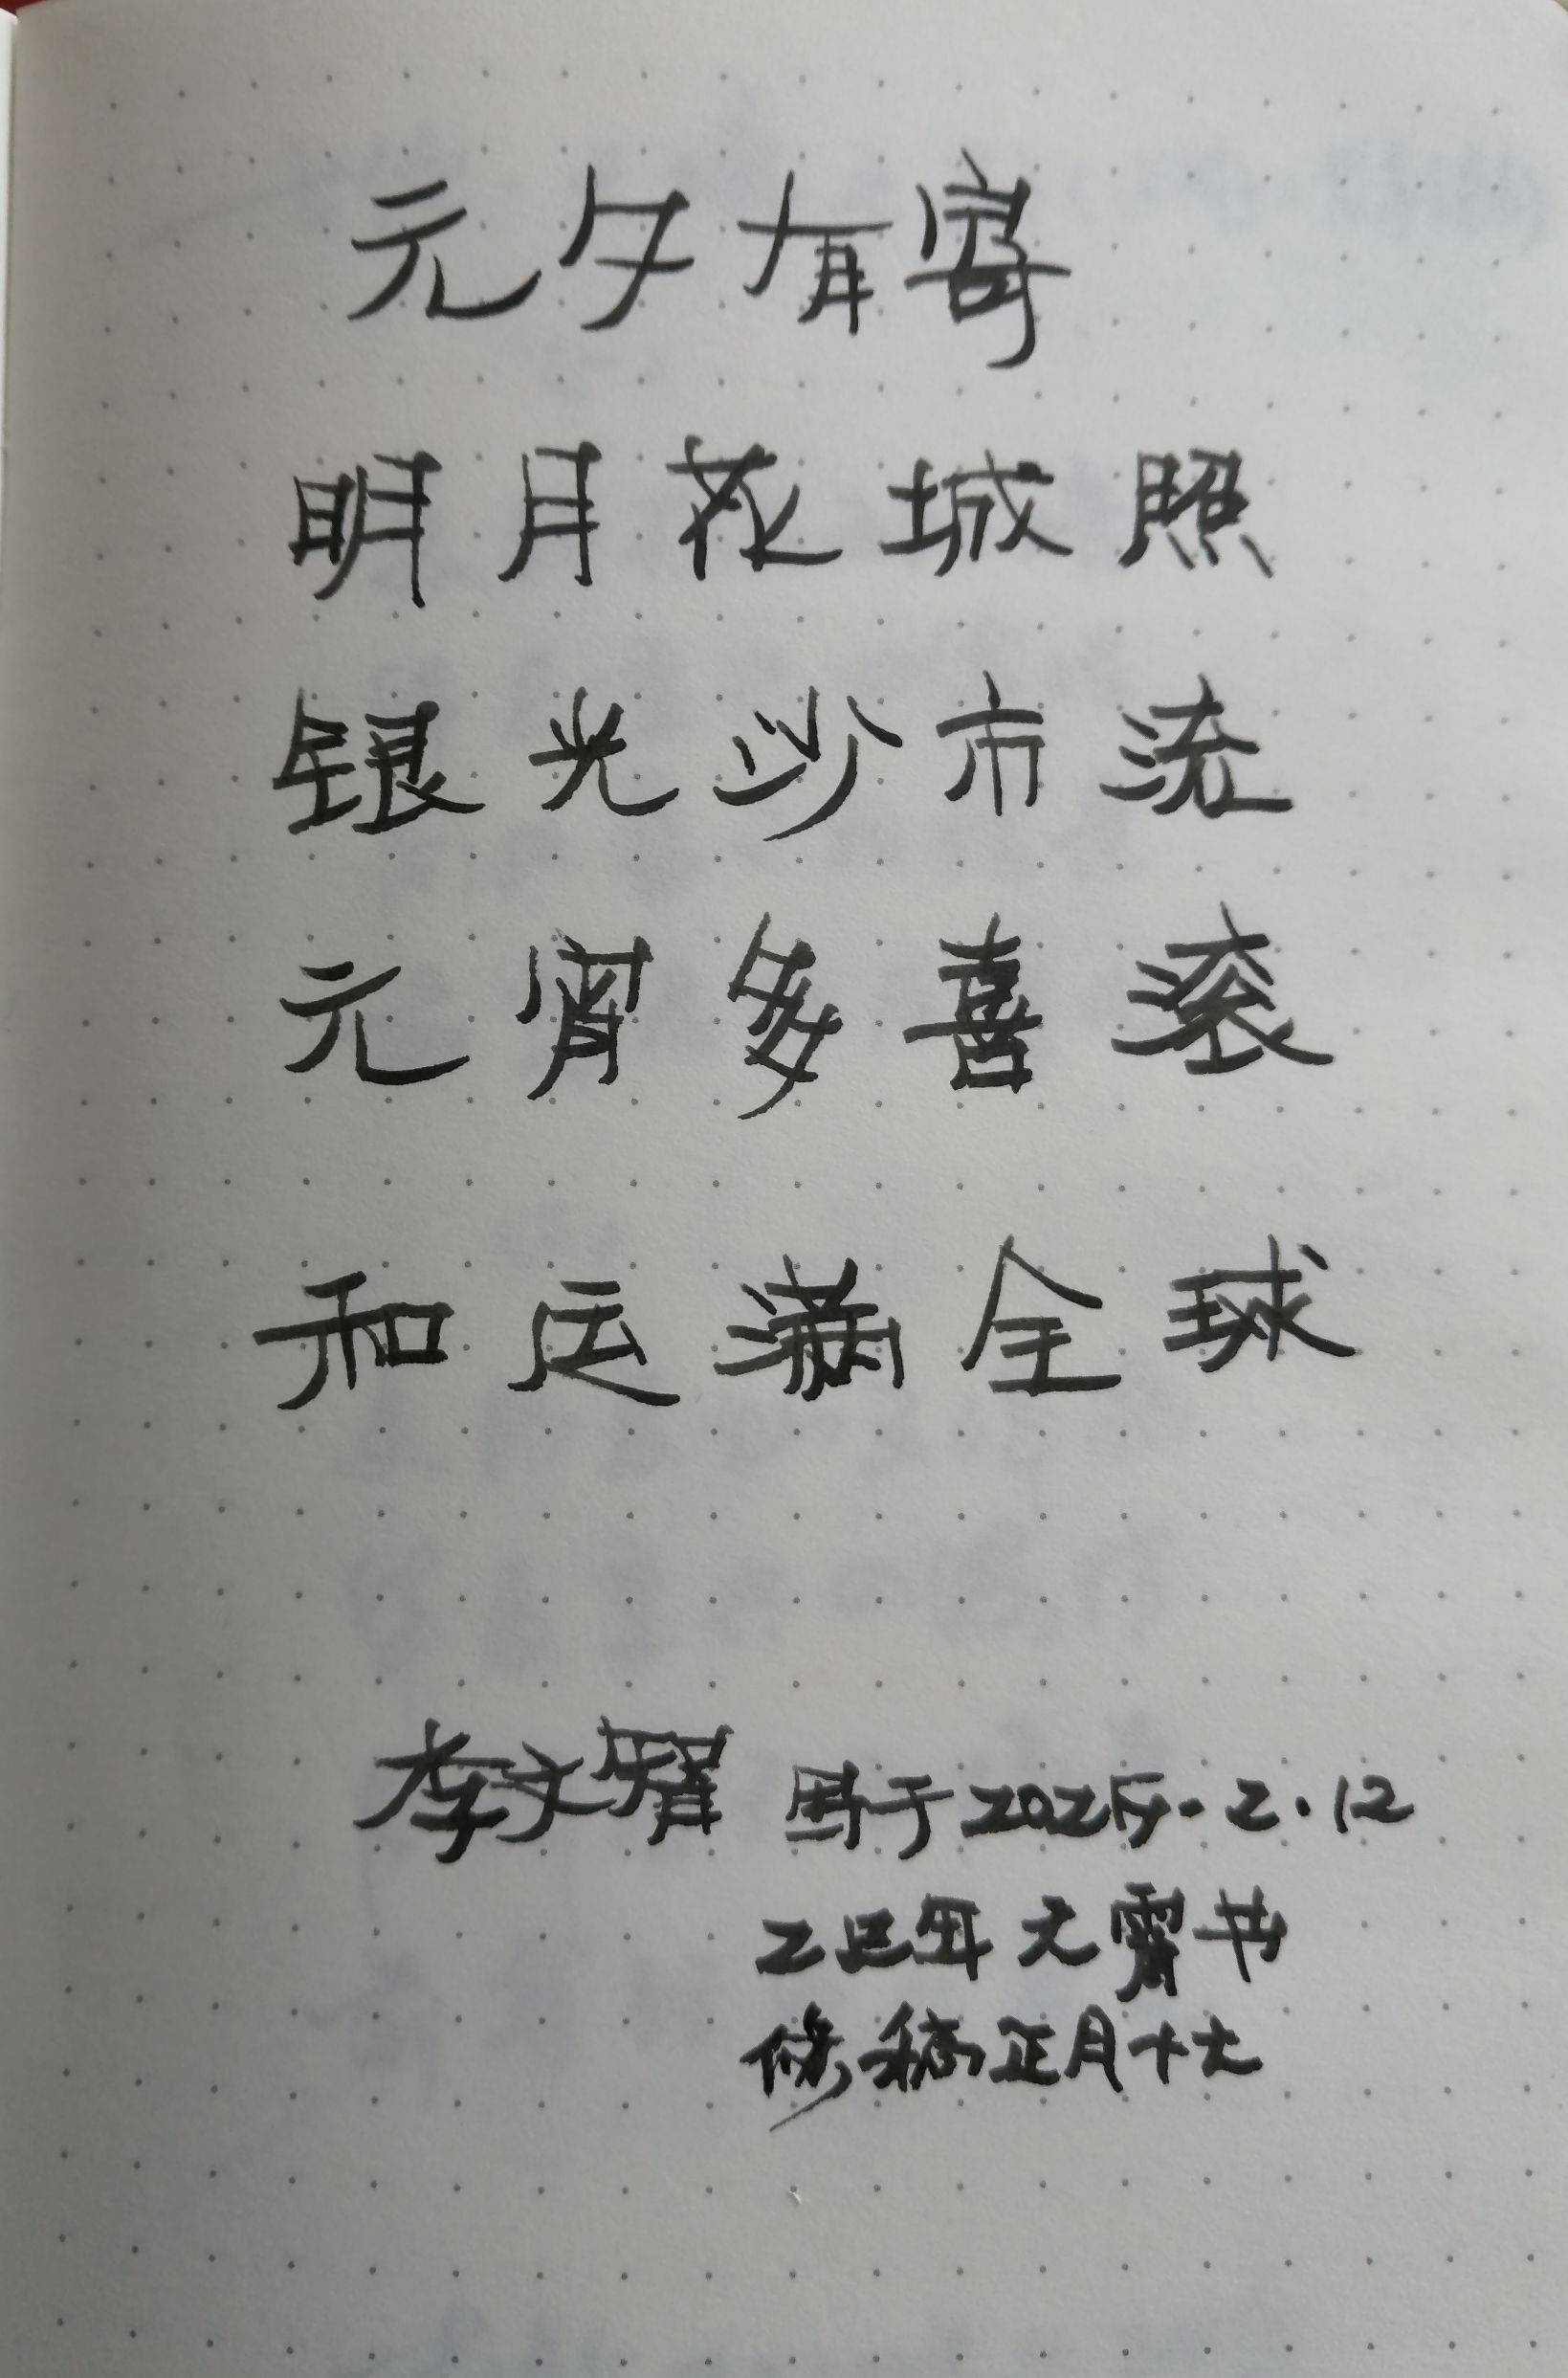 元夕有寄
明月花城照
银光沙市流
元宵多喜滚
和运满全球
李文 于2025.2.12
乙巳年元宵书
修稿正月十七